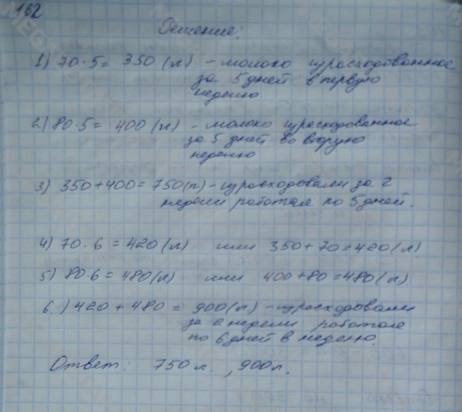 162
Решение:
1) 70·5 = 350 (л) - молоко израсходованное
за 5 дней в первую
неделю
2) 80·5 = 400 (л) - молоко израсходованное
за 5 дней во вторую
неделю
3) 350+400 = 750(л) - израсходовали за 2
недели работая по 5 дней.
4) 70·6 = 420 (л) или 350+70=420(л)
5) 80·6 = 480(л) или 400+80=480(л)
6.) 420 + 480 = 900(л) - израсходовали
за 2 недели работая
по 6 дней в неделю.
Ответ: 750 л., 900 л.